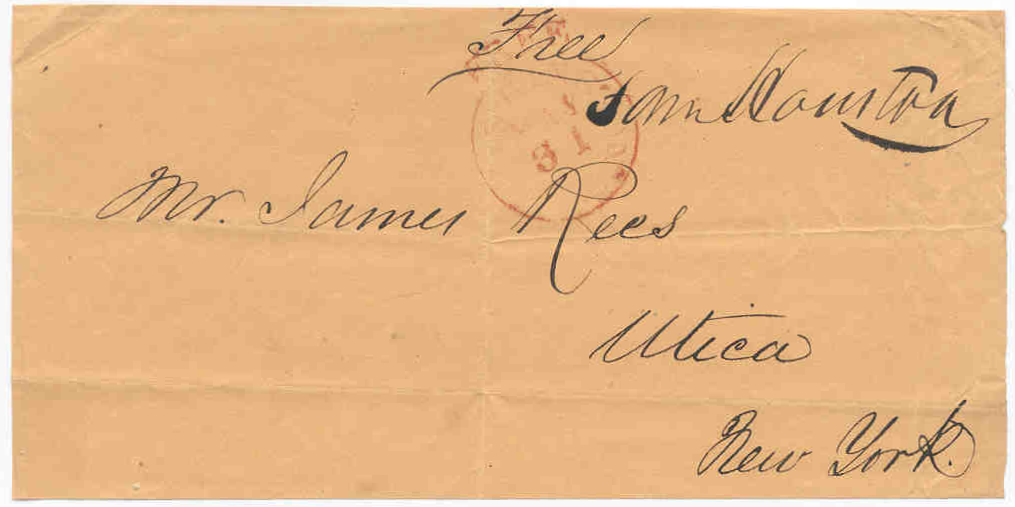 Free
Sam Houston
31
Mr. James Rees
Utica
New York.